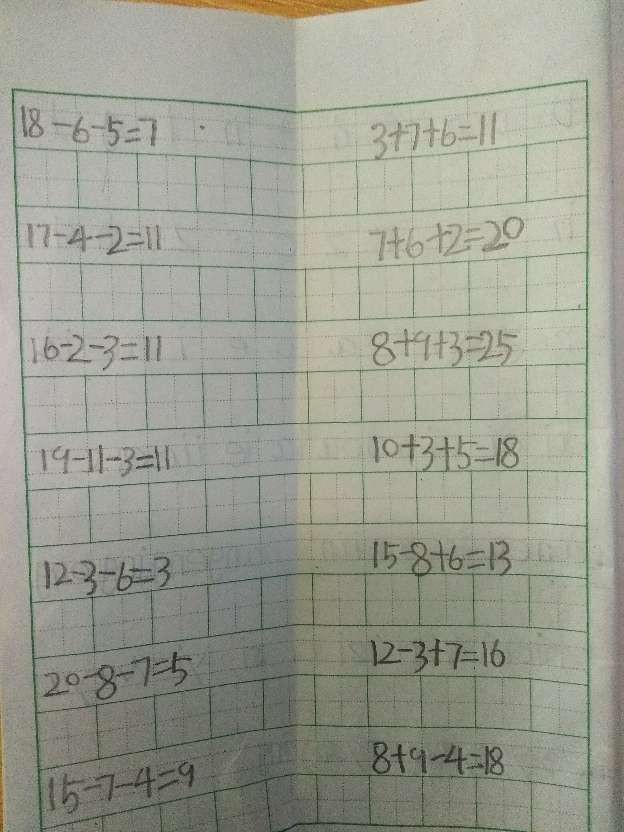 18-6-5=7
17-4-2=11
16-2-3=11
19-11-3=11
12-3-6=3
20-8-7=5
15-7-4=9
3+7+6=11
7+6+2=20
8+9+3=25
10+3+5=18
15-8+6=13
12-3+7=16
8+9-4=18